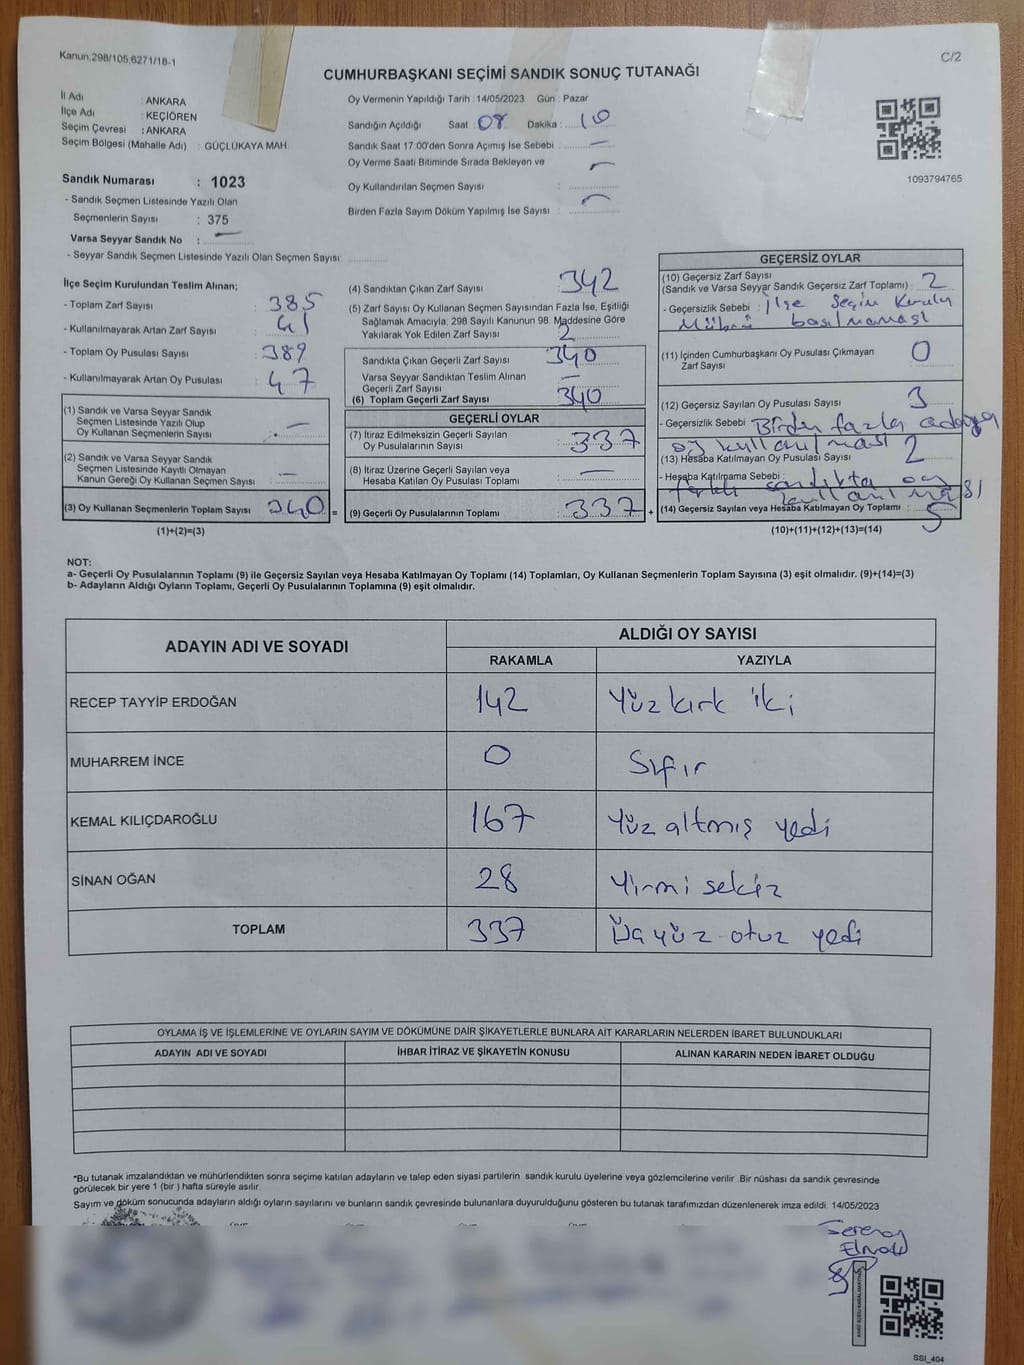 Kanun:298/105,6271/18-1
C/2
CUMHURBAŞKANI SEÇİMİ SANDIK SONUÇ TUTANAĞI
İl Adı : ANKARA
İlçe Adı : KEÇİÖREN
Seçim Çevresi : ANKARA
Seçim Bölgesi (Mahalle Adı) : GÜÇLÜKAYA MAH.
Sandık Numarası : 1023
- Sandık Seçmen Listesinde Yazılı Olan
Seçmenlerin Sayısı : 375
Varsa Seyyar Sandık No : —
- Seyyar Sandık Seçmen Listesinde Yazılı Olan Seçmen Sayısı:
Oy Vermenin Yapıldığı Tarih : 14/05/2023 Gün : Pazar
Sandığın Açıldığı Saat : 08 Dakika : 10
Sandık Saat 17:00'den Sonra Açımış İse Sebebi : —
Oy Verme Saati Bitiminde Sırada Bekleyen ve —
Oy Kullandırılan Seçmen Sayısı :
Birden Fazla Sayım Döküm Yapılmış İse Sayısı : —
1093794765
İlçe Seçim Kurulundan Teslim Alınan;
- Toplam Zarf Sayısı : 385
- Kullanılmayarak Artan Zarf Sayısı : 41
- Toplam Oy Pusulası Sayısı : 389
- Kullanılmayarak Artan Oy Pusulası : 47
(1) Sandık ve Varsa Seyyar Sandık
Seçmen Listesinde Yazılı Olup
Oy Kullanan Seçmenlerin Sayısı : —
(2) Sandık ve Varsa Seyyar Sandık
Seçmen Listesinde Kayıtlı Olmayan
Kanun Gereği Oy Kullanan Seçmen Sayısı : —
(3) Oy Kullanan Seçmenlerin Toplam Sayısı 340 =
(1)+(2)=(3)
(4) Sandıktan Çıkan Zarf Sayısı : 342
(5) Zarf Sayısı Oy Kullanan Seçmen Sayısından Fazla İse, Eşitliği
Sağlamak Amacıyla, 298 Sayılı Kanunun 98. Maddesine Göre
Yakılarak Yok Edilen Zarf Sayısı : 2
Sandıkta Çıkan Geçerli Zarf Sayısı : 340
Varsa Seyyar Sandıktan Teslim Alınan
Geçerli Zarf Sayısı : —
(6) Toplam Geçerli Zarf Sayısı : 340
GEÇERLİ OYLAR
(7) İtiraz Edilmeksizin Geçerli Sayılan
Oy Pusulalarının Sayısı : 337
(8) İtiraz Üzerine Geçerli Sayılan veya
Hesaba Katılan Oy Pusulası Toplamı : —
(9) Geçerli Oy Pusulalarının Toplamı : 337 +
GEÇERSİZ OYLAR
(10) Geçersiz Zarf Sayısı
(Sandık ve Varsa Seyyar Sandık Geçersiz Zarf Toplamı) : 2
- Geçersizlik Sebebi : İlçe Seçim Kurulu
Mührü basılmaması
(11) İçinden Cumhurbaşkanı Oy Pusulası Çıkmayan
Zarf Sayısı : 0
(12) Geçersiz Sayılan Oy Pusulası Sayısı : 3
- Geçersizlik Sebebi : Birden fazla adaya
oy kullanılması
(13) Hesaba Katılmayan Oy Pusulası Sayısı : 2
- Hesaba Katılmama Sebebi :
farklı sandıkta oy
kullanılması
(14) Geçersiz Sayılan veya Hesaba Katılmayan Oy Toplamı : 5
(10)+(11)+(12)+(13)=(14)
NOT:
a- Geçerli Oy Pusulalarının Toplamı (9) ile Geçersiz Sayılan veya Hesaba Katılmayan Oy Toplamı (14) Toplamları, Oy Kullanan Seçmenlerin Toplam Sayısına (3) eşit olmalıdır. (9)+(14)=(3)
b- Adayların Aldığı Oyların Toplamı, Geçerli Oy Pusulalarının Toplamına (9) eşit olmalıdır.
ADAYIN ADI VE SOYADI ALDIĞI OY SAYISI
RAKAMLA YAZIYLA
RECEP TAYYİP ERDOĞAN 142 Yüz kırk iki
MUHARREM İNCE 0 Sıfır
KEMAL KILIÇDAROĞLU 167 Yüz altmış yedi
SİNAN OĞAN 28 Yirmi sekiz
TOPLAM 337 Üçyüz otuz yedi
OYLAMA İŞ VE İŞLEMLERİNE VE OYLARIN SAYIM VE DÖKÜMÜNE DAİR ŞİKAYETLERLE BUNLARA AİT KARARLARIN NELERDEN İBARET BULUNDUKLARI
ADAYIN ADI VE SOYADI İHBAR İTİRAZ VE ŞİKAYETİN KONUSU ALINAN KARARIN NEDEN İBARET OLDUĞU
*Bu tutanak imzalandıktan ve mühürlendikten sonra seçime katılan adayların ve talep eden siyasi partilerin sandık kurulu üyelerine veya gözlemcilerine verilir .Bir nüshası da sandık çevresinde
görülecek bir yere 1 (bir ) hafta süreyle asılır.
Sayım ve döküm sonucunda adayların aldığı oyların sayılarını ve bunların sandık çevresinde bulunanlara duyurulduğunu gösteren bu tutanak tarafımızdan düzenlenerek imza edildi. 14/05/2023
SSI_404